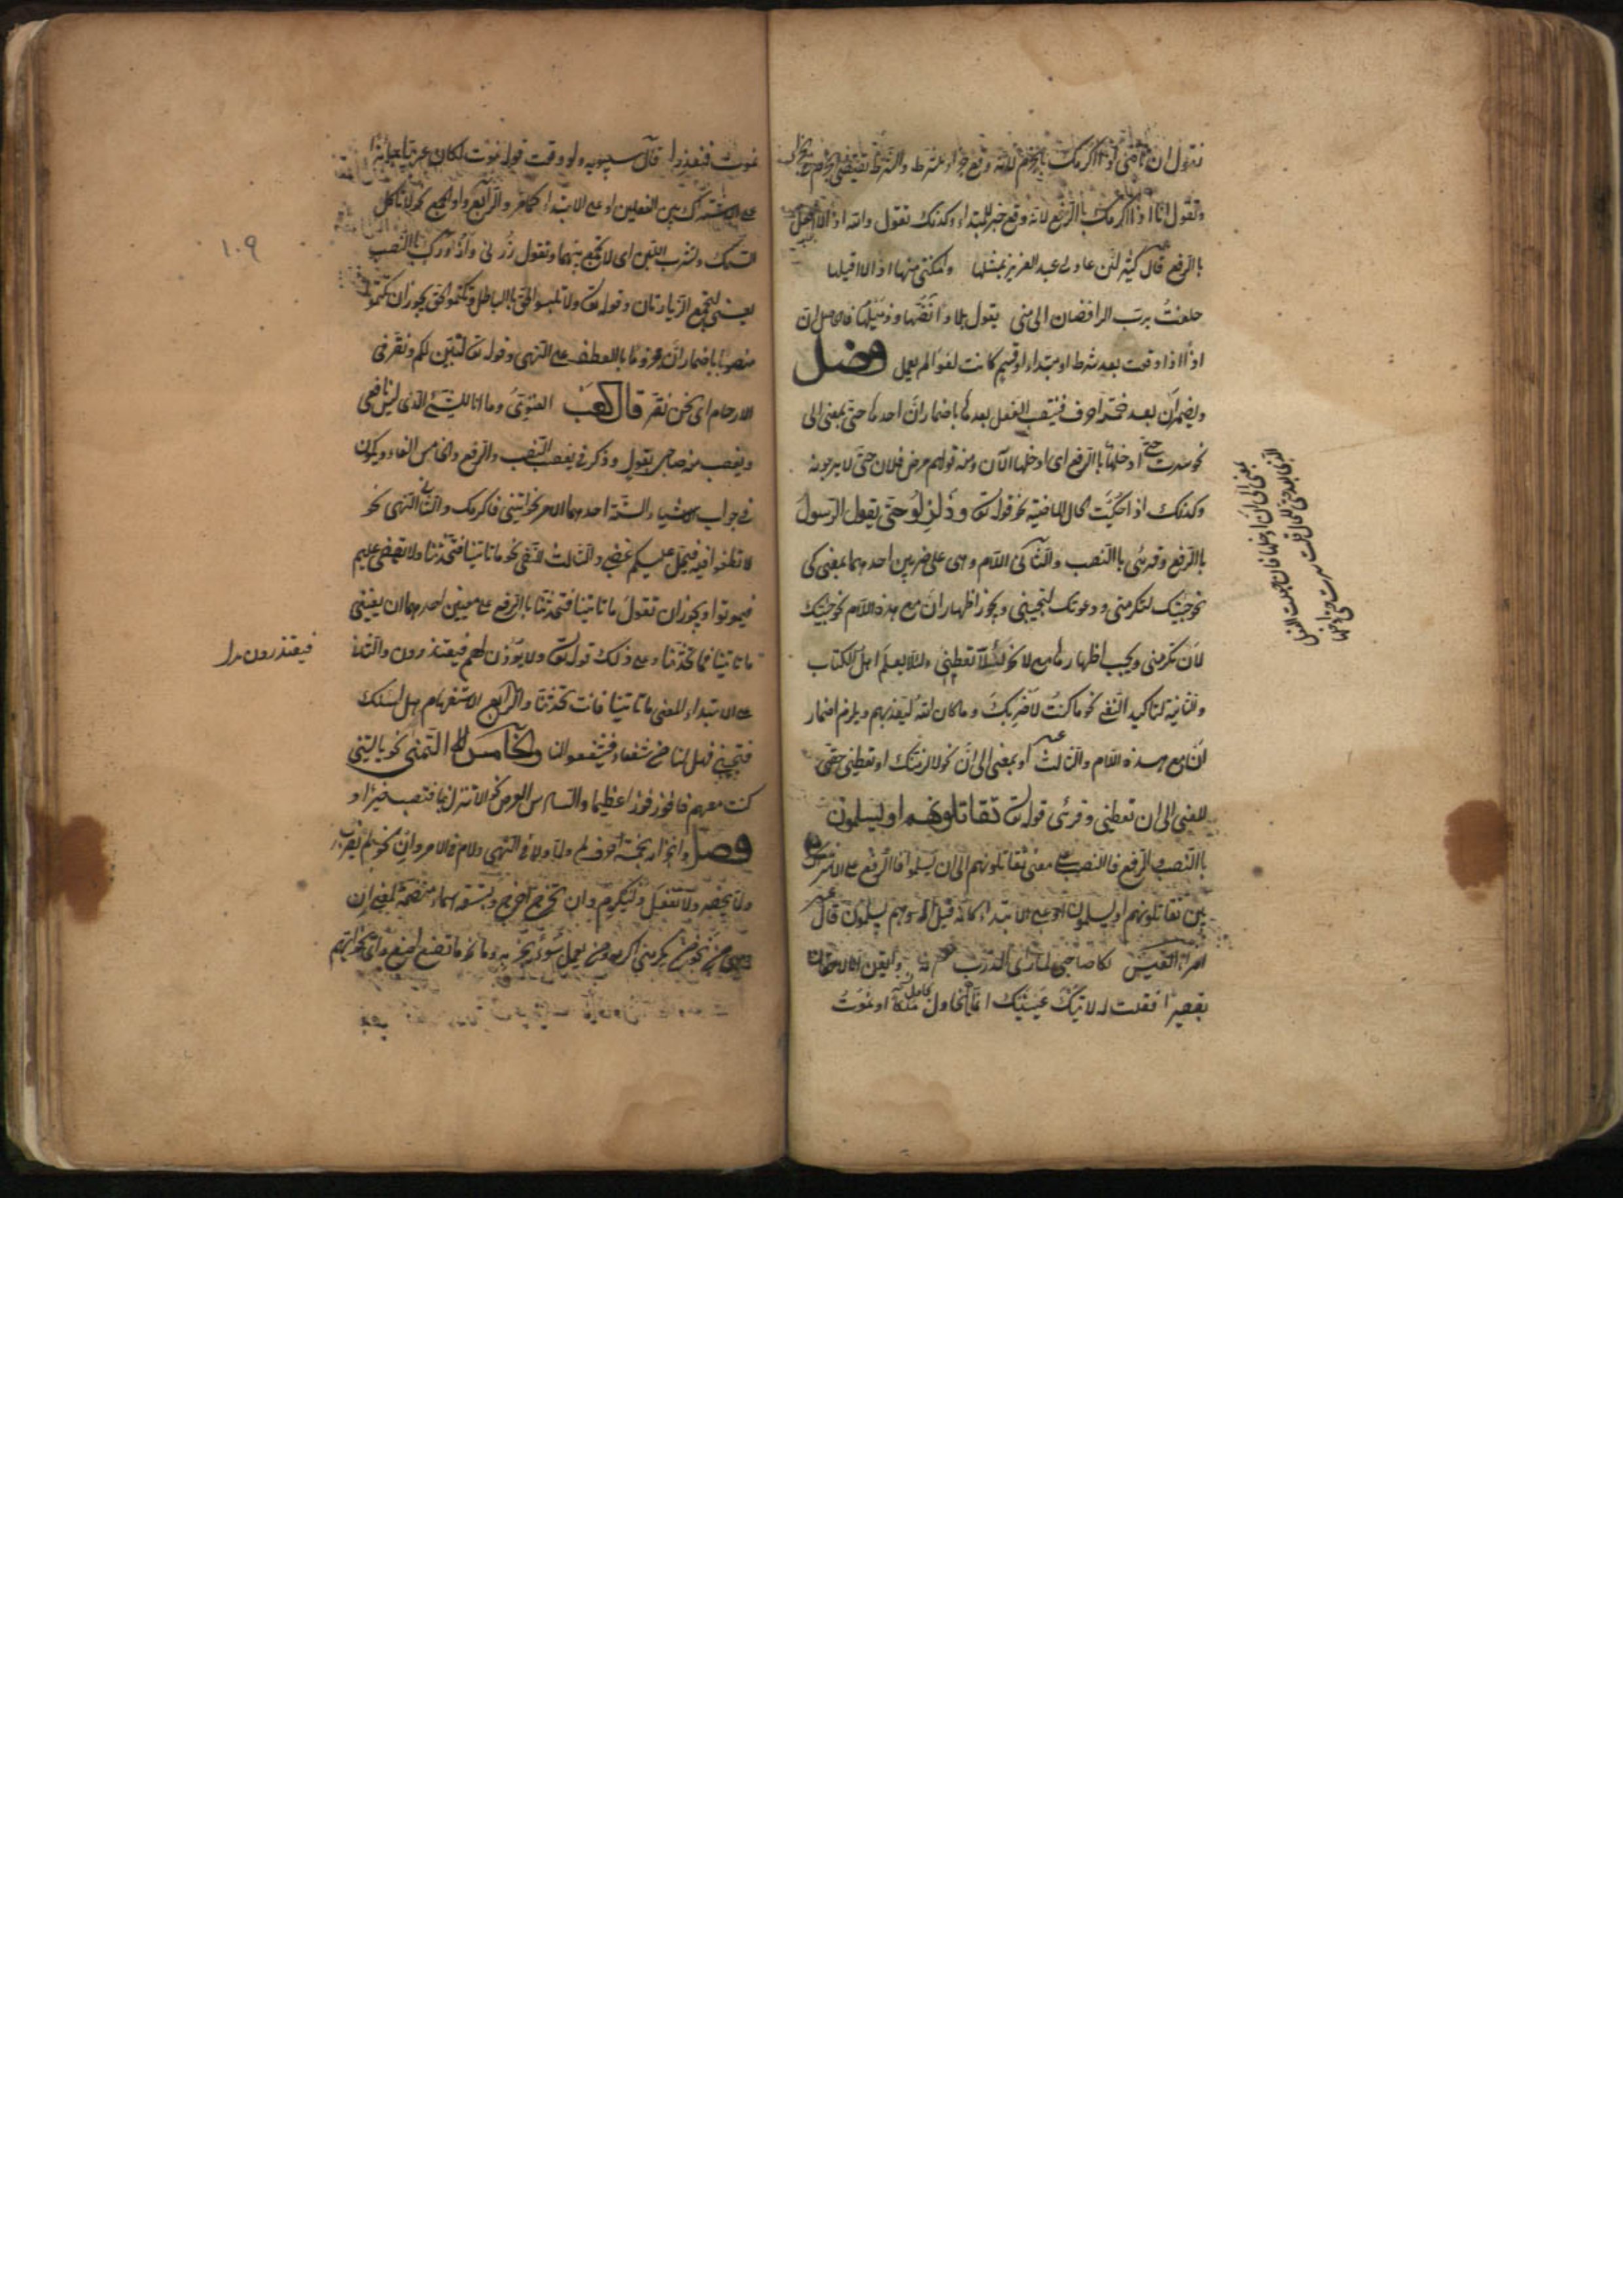 فتقول ان تأتني اذا اكرمك بالجزم لانه وقع جزاء شرط والشرط يقتضي
وتقول انا اذا اكرمك بالرفع لانه وقع خبر المبتداء وكذلك تقول والله اذا لا افعل
بالرفع قال كثير لئن عاد لي عبد العزيز بمثلها وامكنني منها اذا لا اقيلها
حلفت برب الراقصات الى منى يقول
اذا اذا وقعت بعد شرط او مبتداء او قسم كانت لغوا لم يعمل فصل
ويضمر ان بعد خمسة احرف فينتصب الفعل بعدها باضمار ان احدها حتى بمعنى الى
نحو سرت حتى ادخلها بالرفع اى ادخلها الآن ومنه قولهم مرض فلان حتى لا يرجونه
وكذلك اذا حكيت الحال الماضية نحو قوله تع وزلزلوا حتى يقول الرسول
بالرفع وقرئ بالنصب والثانى اللام وهى على ضربين احدهما بمعنى كى
نحو جئتك لتكرمنى ودعوتك لتجيبنى ويجوز اظهار ان مع هذه اللام نحو جئتك
لان تكرمنى ويجب اظهارها مع لا نحو لئلا تعطينى ولئلا يعلم اهل الكتاب
والثانية لتاكيد النفى نحو ما كنت لاضربك وما كان الله ليعذبهم ويلزم اضمار
ان مع هذه اللام والثالث او بمعنى الى ان نحو لالزمنك او تعطينى حقى
المعنى الى ان تعطينى وقرئ قوله تع تقاتلونهم او يسلمون
بالنصب والرفع فالنصب على معنى تقاتلونهم الى ان يسلموا فالرفع على الاشتراك
بين تقاتلونهم او يسلمون او على الابتداء كانه قيل او هم يسلمون قال
امرأ القيس بكا صاحبى لما رأى الدرب دونه وايقن انا لاحقان
بقيصرا فقلت له لا تبك عينك انما نحاول ملكا او نموت
نموت فنعذرا قال سيبويه ولو وقعت قوله نموت لكان عربيا جائزا
على الاشتراك بين الفعلين او على الابتداء كما مر والرابع واو الجمع نحو لا تأكل
السمك وتشرب اللبن اى لا تجمع بينهما وتقول زرنى وازورك بالنصب
يعنى لتجتمع الزيارتان وقوله تع ولا تلبسوا الحق بالباطل وتكتموا الحق يجوز ان يكون
منصوبا باضمار ان ومجزوما بالعطف على النهى وقوله تع لنبين لكم ونقر فى
الارحام اى نحن نقر قال كعب الغنوى وما انا للشئ الذى ليس نافعى
ويغضب منه صاحبى بقؤول وذكر فى يغضب النصب والرفع والخامس الفاء ويكون
فى جواب الاشياء الستة احدهما الامر نحو ايتنى فاكرمك والثانى النهى نحو
لا تطغوا فيه فيحل عليكم غضبى والثالث النفى نحو ما تاتينا فتحدثنا ولا يقضى عليهم
فيموتوا ويجوز ان تقول ما تاتينا فتحدثنا بالرفع على معنيين احدهما ان يعنى
ما تاتينا فما تحدثنا وعلى ذلك قوله تع ولا يؤذن لهم فيعتذرون والثانى
على الابتداء المعنى ما تاتينا فانت تحدثنا والرابع الاستفهام هل اسئلك
فتجيبنى فهل لنا من شفعاء فيشفعوا لنا والخامس التمنى نحو يا ليتنى
كنت معهم فافوز فوزا عظيما والسادس العرض نحو الا تنزل بنا فتصيب خيرا و
فصل وانجزامه بخمسة احرف لم ولما ولا فى النهى ولام الامر وان نحو لم يضرب
ولما يحضر ولا تفعل وليكرم وان تخرج اخرج وبتسعة اسماء متضمنة لمعنى ان
وهى من نحو من يكرمنى اكرمه ومن يعمل سوءا يجز به وما نحو ما تصنع اصنع واى نحو ايهم
١٠٩
فيعتذرون